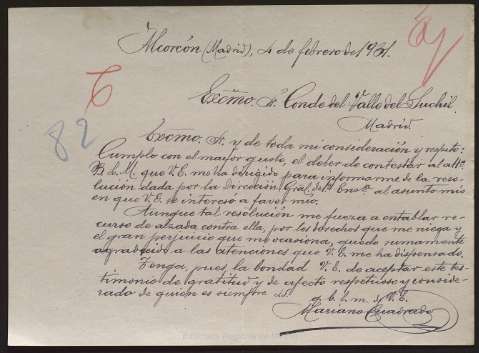 Alcorcón (Madrid), 4 de febrero de 1931.
Excmo. Sr. Conde del Valle del Suchil.
Madrid.
82
Excmo. Sr. y de toda mi consideración y respeto:
Cumplo con el mayor gusto, el deber de contestar al att.º
B. L. M. que V. E. me ha dirigido para informarme de la reso-
lución dada por la Dirección Gral. de 1ª Ens.ª al asunto mío
en que V. E. se interesó a favor mío.
Aunque tal resolución me fuerza a entablar re-
curso de alzada contra ella, por los derechos que me niega y
el gran perjuicio que me ocasiona, quedo sumamente
agradecido a las atenciones que V. E. me ha dispensado.
Tenga, pues la bondad V. E. de aceptar este tes-
timonio de gratitud y de afecto respetuoso y conside-
rado de quien es siempre
q. b. l. m. de V. E.
Mariano Cuadrado